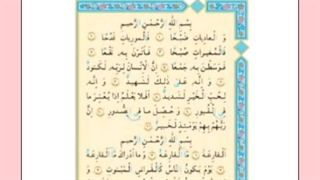 بِسْمِ اللهِ الرَّحْمٰنِ الرَّحِيمِ
وَ الْعَادِيَاتِ ضَبْحًا ۝ فَالْمُورِيَاتِ قَدْحًا ۝
فَالْمُغِيرَاتِ صُبْحًا ۝ فَأَثَرْنَ بِهِ نَقْعًا ۝
فَوَسَطْنَ بِهِ جَمْعًا ۝ إِنَّ الْإِنْسَانَ لِرَبِّهِ لَكَنُودٌ
۝ وَ إِنَّهُ عَلَىٰ ذَٰلِكَ لَشَهِيدٌ ۝ وَ إِنَّهُ
لِحُبِّ الْخَيْرِ لَشَدِيدٌ ۝ أَفَلَا يَعْلَمُ إِذَا بُعْثِرَ مَا
فِي الْقُبُورِ ۝ وَ حُصِّلَ مَا فِي الصُّدُورِ ۝ إِنَّ
رَبَّهُمْ بِهِمْ يَوْمَئِذٍ لَخَبِيرٌ ۝
بِسْمِ اللهِ الرَّحْمٰنِ الرَّحِيمِ
اَلْقَارِعَةُ ۝ مَا الْقَارِعَةُ ۝ وَ مَا أَدْرَاكَ مَا الْقَارِعَةُ
۝ يَوْمَ يَكُونُ النَّاسُ كَالْفَرَاشِ الْمَبْثُوثِ ۝ وَ